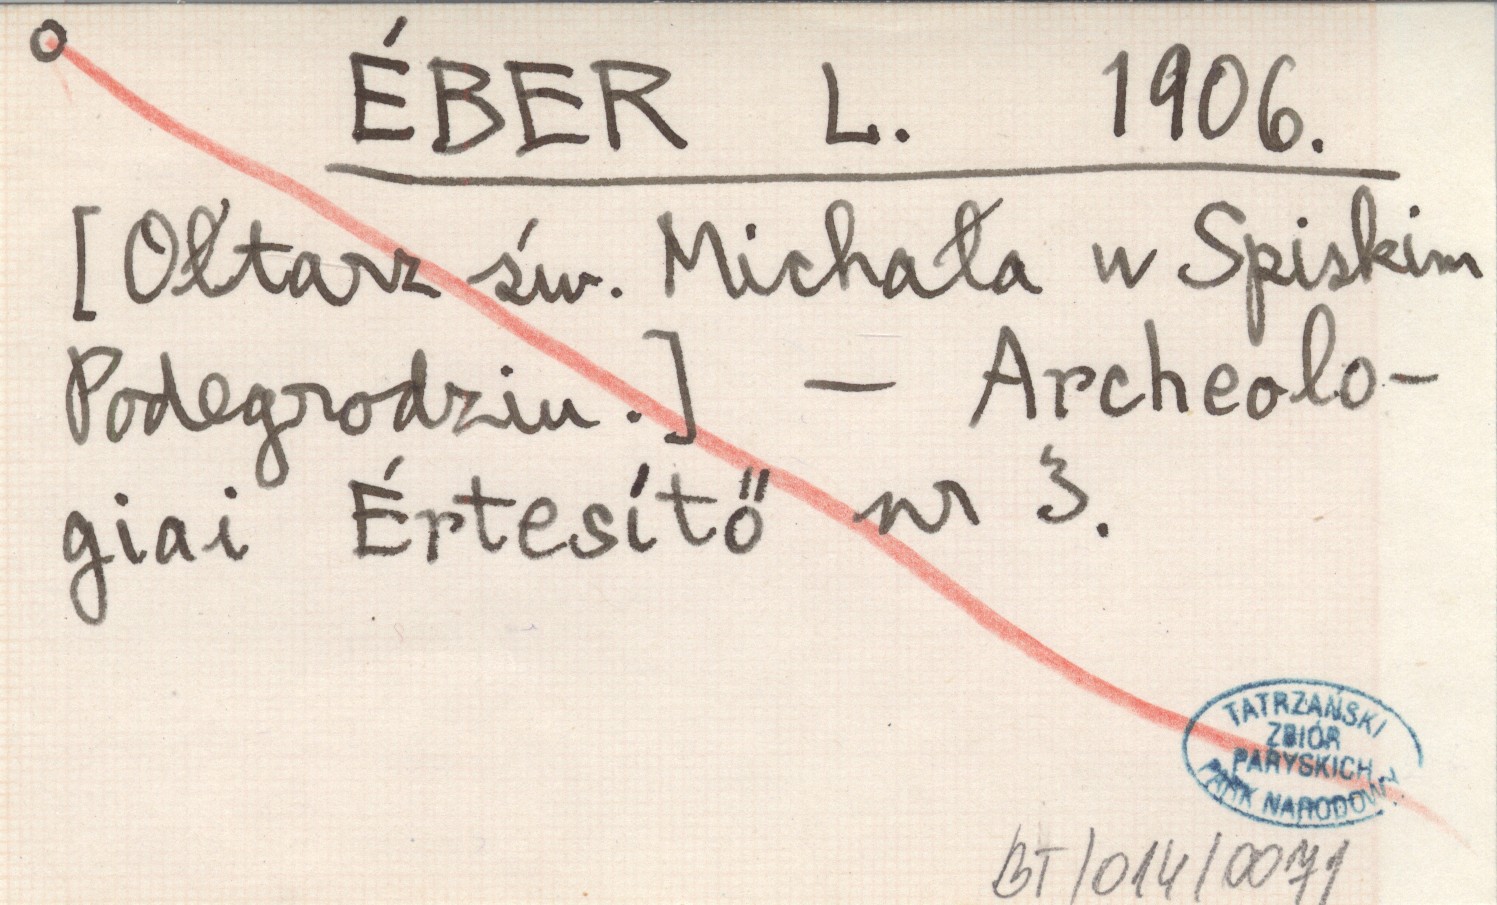 ÉBER L. 1906.
[Ołtarz św. Michała w Spiskim
Podegrodziu.] — Archeolo-
giai Értesítő nr 3.
TATRZAŃSKI
ZBIÓR
PARYSKICH
PARK NARODOWY
BT/014/0071